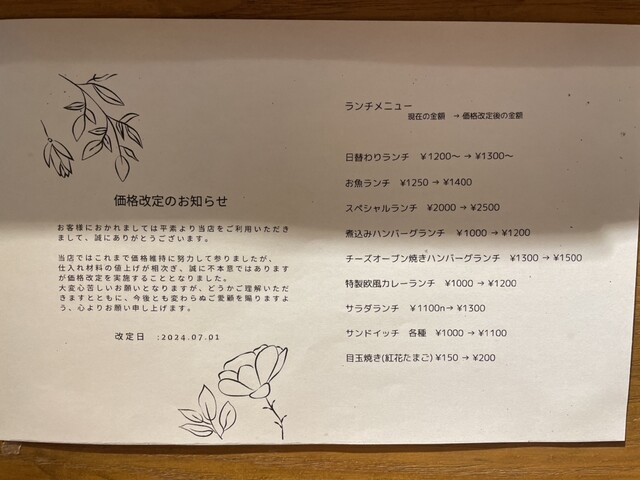 価格改定のお知らせ
お客様におかれましては平素より当店をご利用いただき
まして、誠にありがとうございます。
当店ではこれまで価格維持に努力して参りましたが、
仕入れ材料の値上げが相次ぎ、誠に不本意ではあります
が価格改定を実施することとなりました。
大変心苦しいお願いとなりますが、どうかご理解いただ
きますとともに、今後とも変わらぬご愛顧を賜りますよ
う、心よりお願い申し上げます。
改定日 :2024.07.01
ランチメニュー
現在の金額 → 価格改定後の金額
日替わりランチ ¥1200〜 → ¥1300〜
お魚ランチ ¥1250 → ¥1400
スペシャルランチ ¥2000 → ¥2500
煮込みハンバーグランチ ¥1000 → ¥1200
チーズオーブン焼きハンバーグランチ ¥1300 → ¥1500
特製欧風カレーランチ ¥1000 → ¥1200
サラダランチ ¥1100n→ ¥1300
サンドイッチ 各種 ¥1000 → ¥1100
目玉焼き(紅花たまご) ¥150 → ¥200